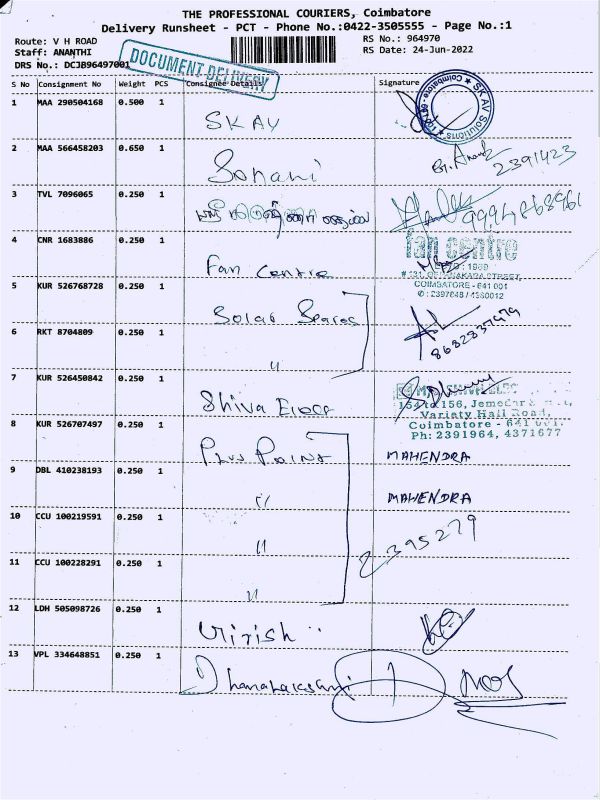 THE PROFESSIONAL COURIERS, Coimbatore
Delivery Runsheet - PCT - Phone No.:0422-3505555 - Page No.:1
Route: V H ROAD
RS No.: 964970
Staff: ANANTHI
RS Date: 24-Jun-2022
DRS No.: DCJB96497001
DOCUMENT DELIVERY
S No Consignment No Weight PCS Consignee Details Signature
1 MAA 290504168 0.500 1 SKAV
SKAV Solutions Coimbatore - 641 001
2 MAA 566458203 0.650 1 Sonani 2391423
3 TVL 7096065 0.250 1 9994868961
4 CNR 1683886 0.250 1 Fan Centre
fan centre
COIMBATORE - 641 001
5 KUR 526768728 0.250 1 Solar Spares
6 RKT 8704809 0.250 1 " 8682837979
7 KUR 526450842 0.250 1 Shiva Elect
154 to 156, Jemedar
Variaty Hall Road,
Coimbatore - 641 001.
Ph: 2391964, 4371677
8 KUR 526707497 0.250 1 Plus Point MAHENDRA
9 DBL 410238193 0.250 1 " MAHENDRA
10 CCU 100219591 0.250 1 " 2395279
11 CCU 100228291 0.250 1 "
12 LDH 505098726 0.250 1 Girish
13 VPL 334648851 0.250 1 Dhanalakshmi